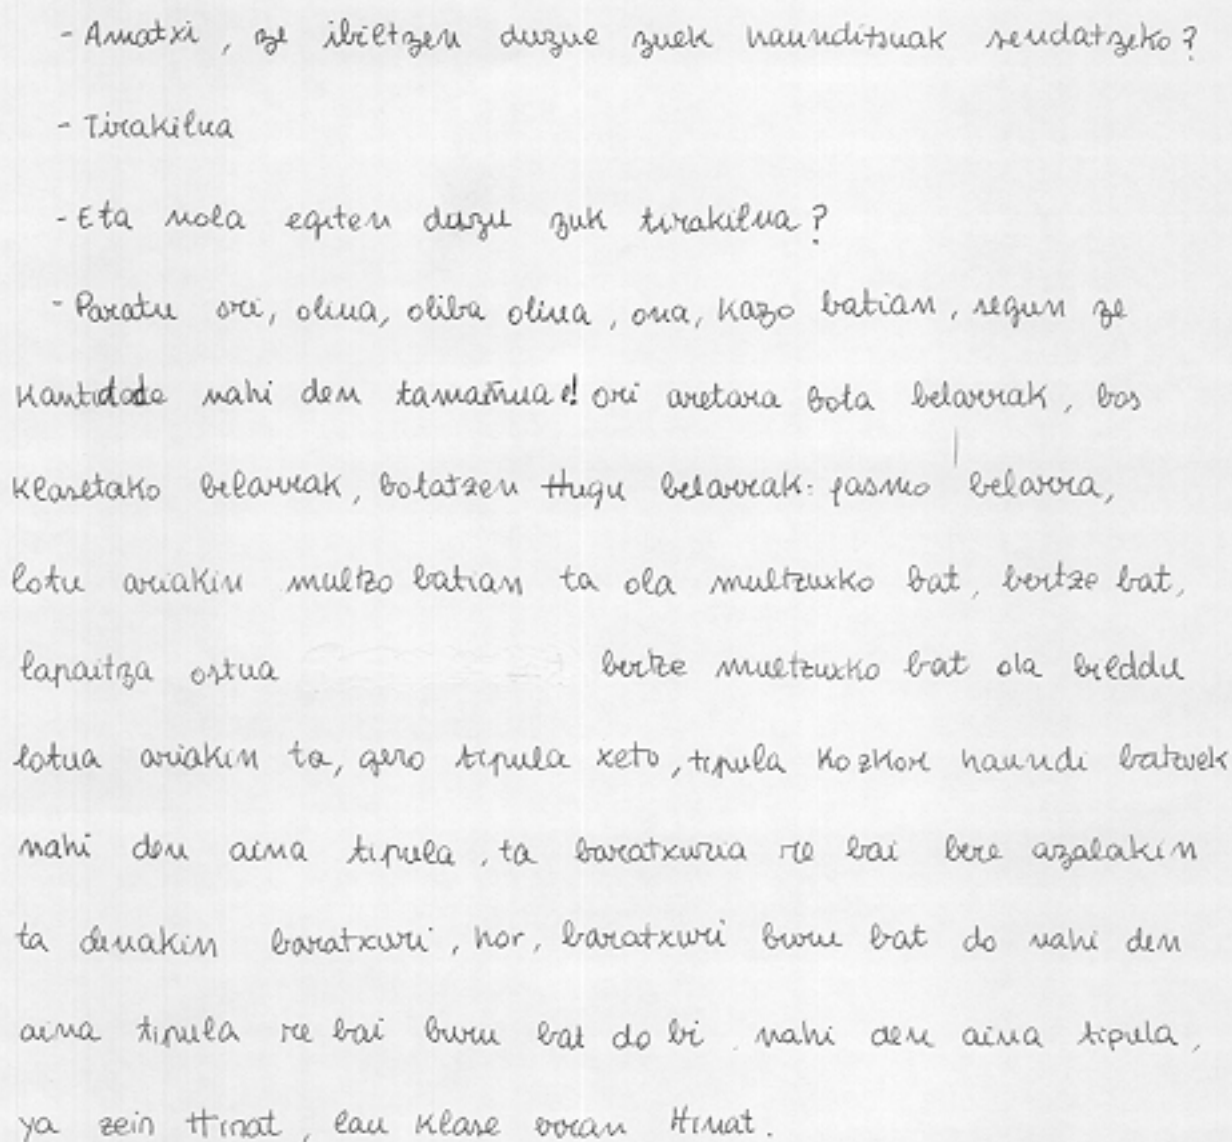 - Amatxi, ze ibiltzen duzue zuek haunditsuak sendatzeko?
- Tirakilua
- Eta nola egiten duzu zuk tirakilua?
- Paratu ori, oliua, oliba oliua, ona, kazo batian, segun ze
kantidade nahi den tamañua e! ori aretara bota belarrak, bos
klasetako belarrak, botatzen ttugu belarrak: pasmo belarra,
lotu ariakin multzo batian ta ola multzuxko bat, bertze bat,
lapaitza ostua bertze multzuxko bat ola bilddu
lotua ariakin ta, gero tipula xeto, tipula kozkor haundi batzuek
nahi den aina tipula, ta baratxuria re bai bere azalakin
ta denakin baratxuri, hor, baratxuri buru bat do nahi den
aina tipula re bai buru bat do bi, nahi den aina tipula,
ya zein ttinat, lau klase orran ttinat.